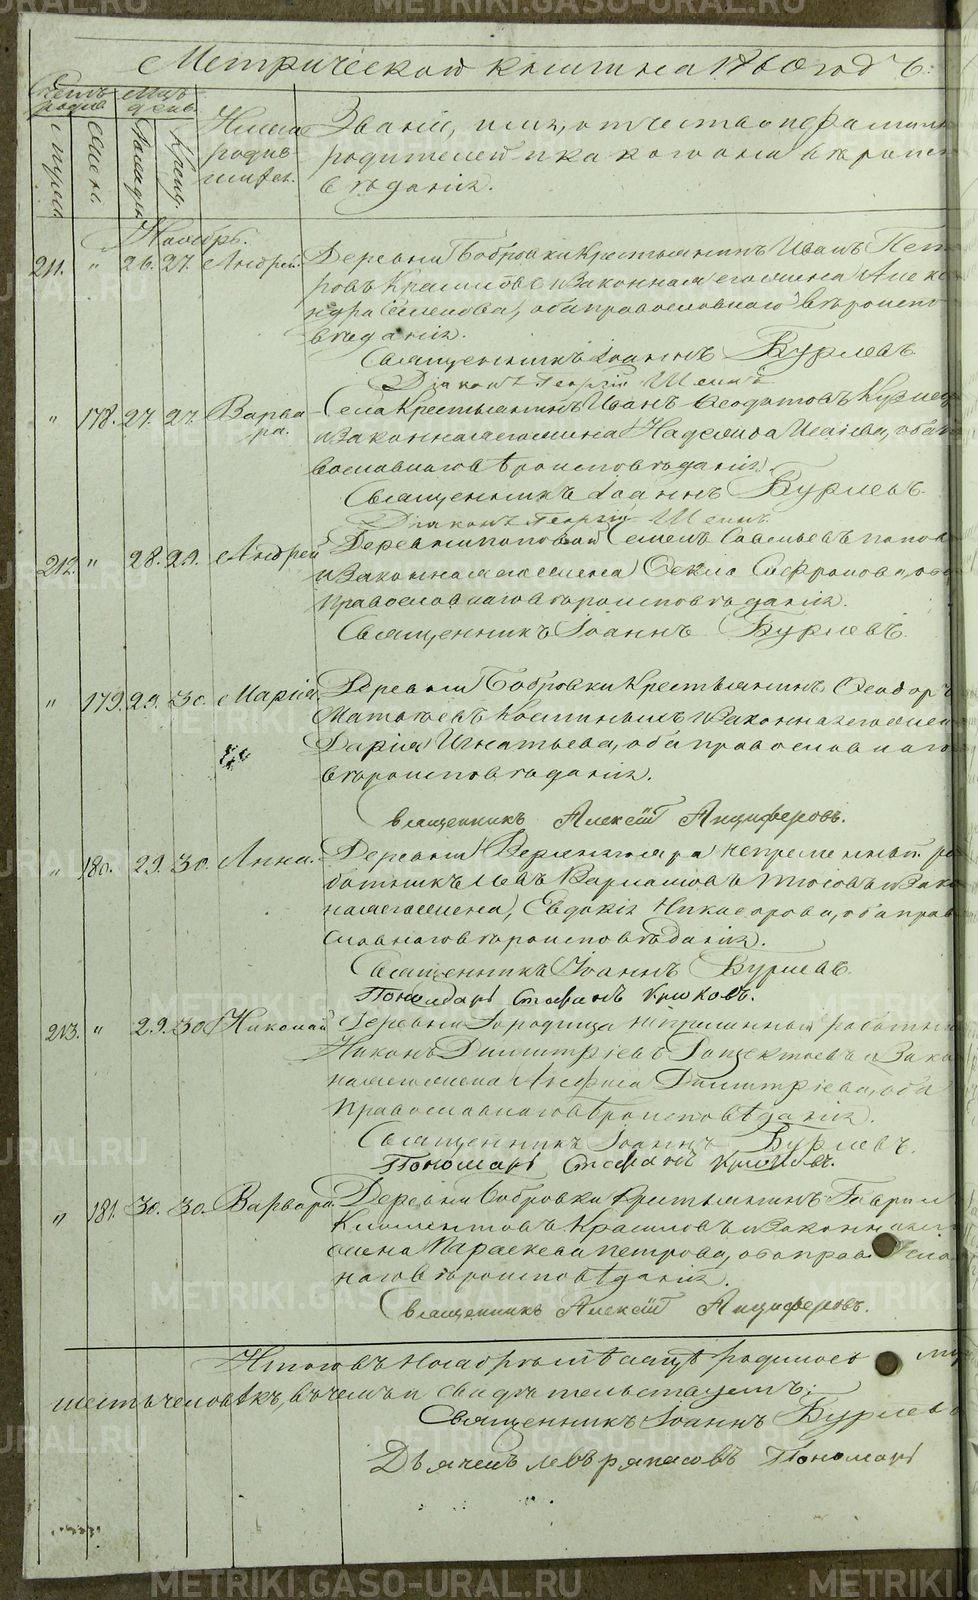 Метрической книги на 1860 годъ:
Счетъ родив.
Мѣс. день.
Имена родив-
шихся.
Званіе, имя, отчество и фамилія
родителей и какого они вѣроиспо-
вѣданія.
Мужск.
Женск.
Рожден.
Крещ.
Ноябрь.
211. " 26. 27. Андрей. Деревни Бобровки Крестьянинъ Иванъ Пет
ровъ и Законная его жена Алекс
ндра Семенова, оба православнаго вѣроиспо
вѣданія.
Священникъ Іоаннъ Бурлевъ
Діаконъ Георгій
" 178. 27. 27. Варва
ра.
Села Крестьянинъ Иванъ Ѳеодотовъ
и Законная его жена Надежда Исаіева, оба
вославнаго вѣроисповѣданія.
Священникъ Іоаннъ Бурлевъ.
Діаконъ Георгій
212. " 28. 29. Андрей Деревни Поповой Семенъ Савельевъ Попов
и Законная его жена Ѳекла Сафронова, оба
православнаго вѣроисповѣданія.
Священникъ Іоаннъ Бурлевъ.
" 179. 29. 30. Марія. Деревни Бобровки Крестьянинъ Ѳеодоръ
Матѳѣевъ и Законная его жена
Дарія Игнатьева, оба православнаго
вѣроисповѣданія.
Священникъ Алексій Анциферовъ.
" 180. 29. 30. Анна. Деревни непремѣнный ра
ботникъ Левъ Варламовъ и Зако
ная его жена, Евдокія Никифорова, оба прав
славнаго вѣроисповѣданія.
Священникъ Іоаннъ Бурлевъ.
Пономарь Стефанъ Крюковъ.
213. " 29. 30. Николай Деревни Городища непремѣнный работни
Никонъ Димитріевъ и Зако
ная его жена Анфиса Димитріева, оба
православнаго вѣроисповѣданія.
Священникъ Іоаннъ Бурлевъ.
Пономарь Стефанъ Крюковъ.
" 181. 30. 30. Варвара. Деревни Бобровки Крестьянинъ Гаврил
Климентовъ и Законная его
жена Параскева Петрова, оба православ
наго вѣроисповѣданія.
Священникъ Алексій Анциферовъ.
Итого въ Ноябрѣ мѣсяцѣ родилось
шесть человѣкъ, въ чемъ и свидѣтельствуемъ:
Священникъ Іоаннъ Бурлевъ
Дьячекъ Левъ Пономарь
METRIKI.GASO-URAL.RU